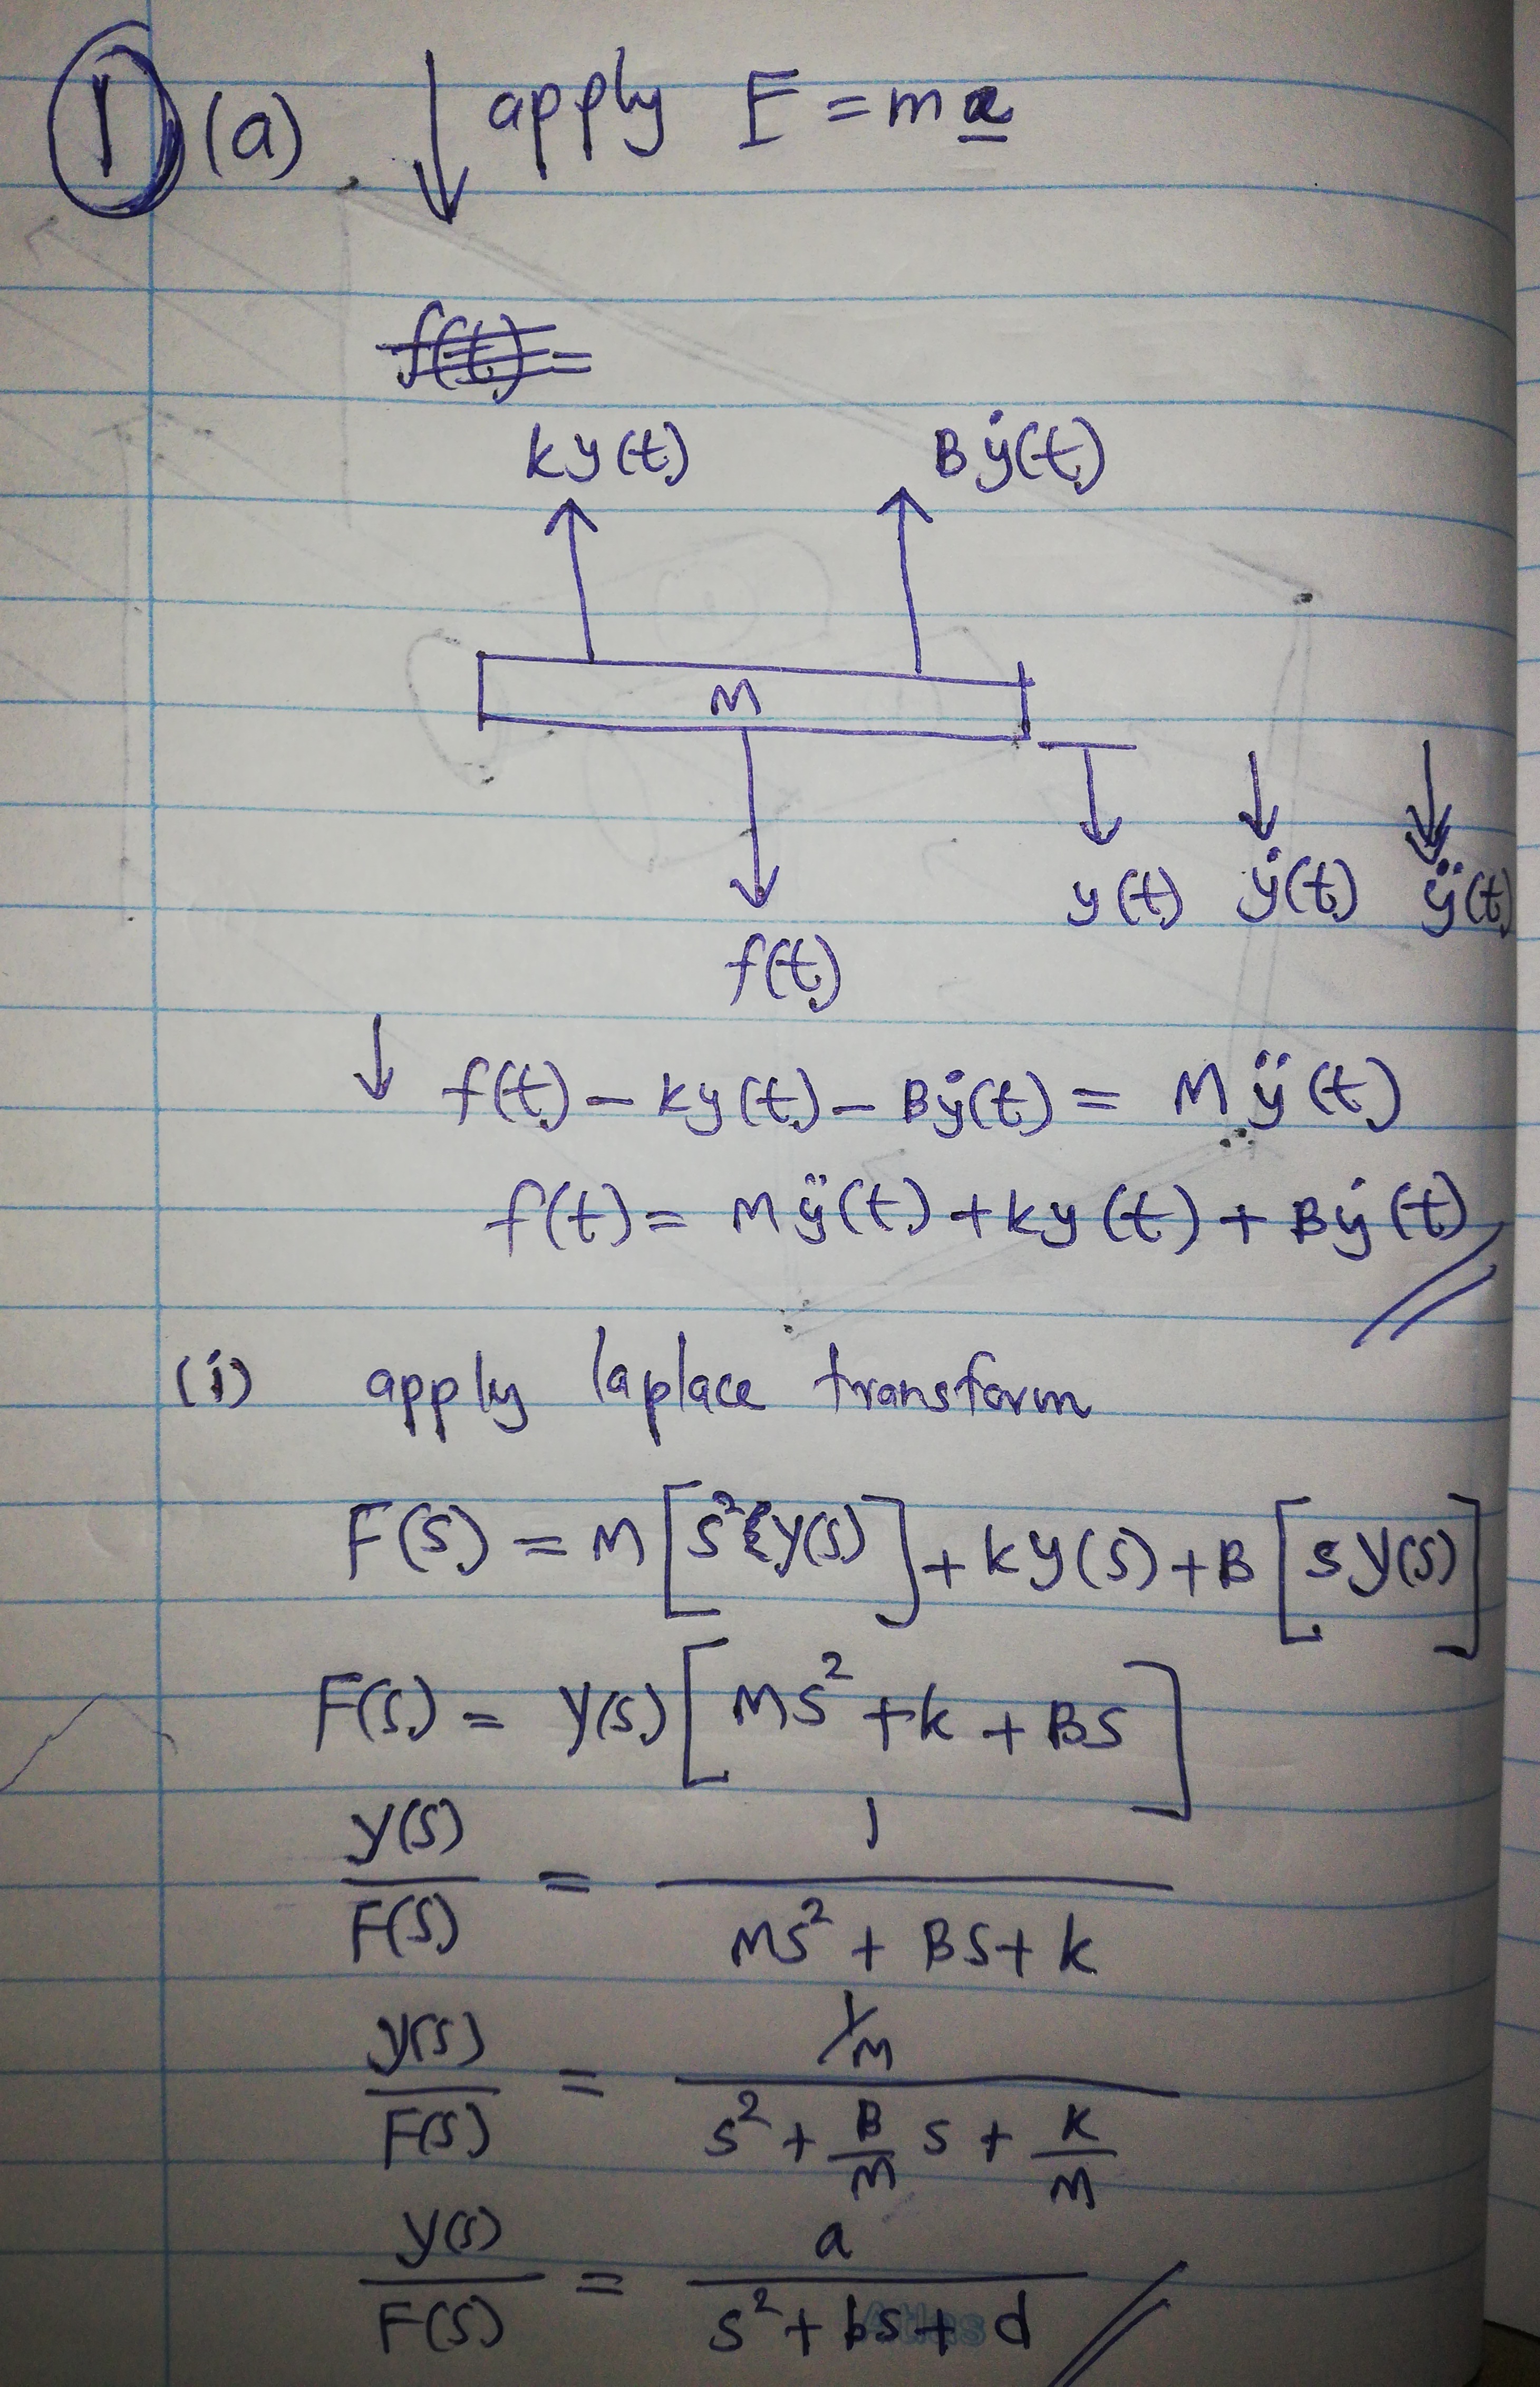 1 (a) ↓ apply F = ma
f(t) =
ky(t) Bẏ(t)
M
y(t) ẏ(t) ÿ(t)
f(t)
↓ f(t) - ky(t) - Bẏ(t) = Mÿ(t)
f(t) = Mÿ(t) + ky(t) + Bẏ(t)
(i) apply laplace transform
F(s) = M[s²y(s)] + ky(s) + B[sy(s)]
F(s) = y(s)[Ms² + k + Bs]
y(s)/F(s) = 1/(Ms² + Bs + k)
y(s)/F(s) = (1/M)/(s² + (B/M)s + K/M)
y(s)/F(s) = a/(s² + bs + d)
Atlas